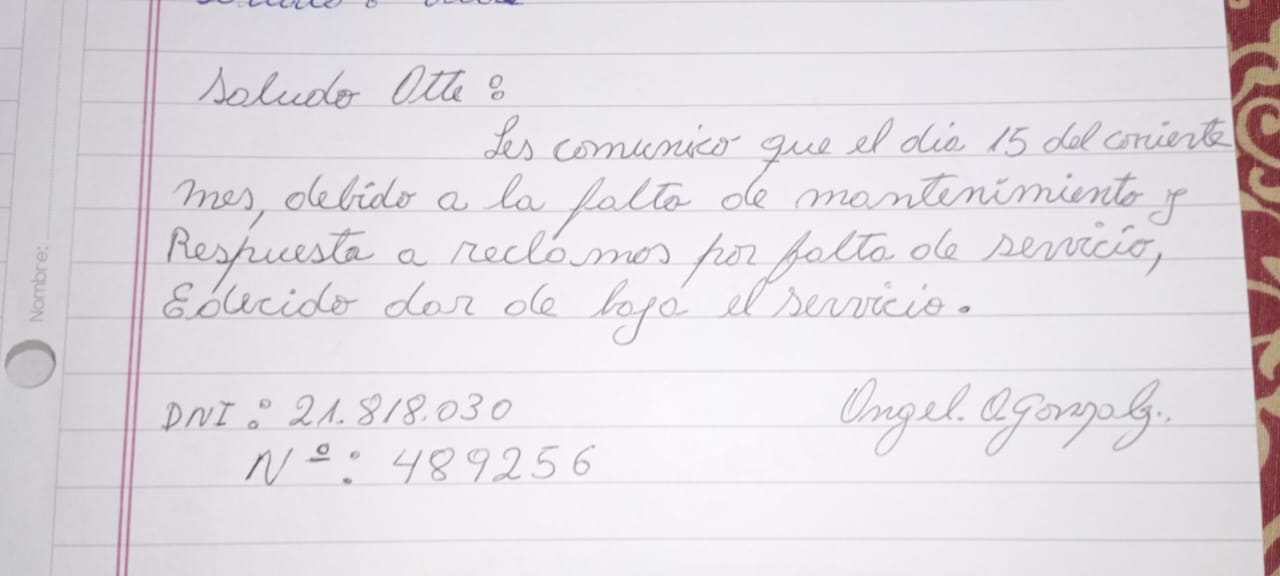 Saludo Otte:
Les comunico que el dia 15 del corriente
mes, debido a la falta de mantenimiento y
Respuesta a reclamos por falta de servicio,
E decido dar de baja el servicio.
DNI: 21.818.030
Angel. A Gonzalz..
Nº: 489256
Nombre: